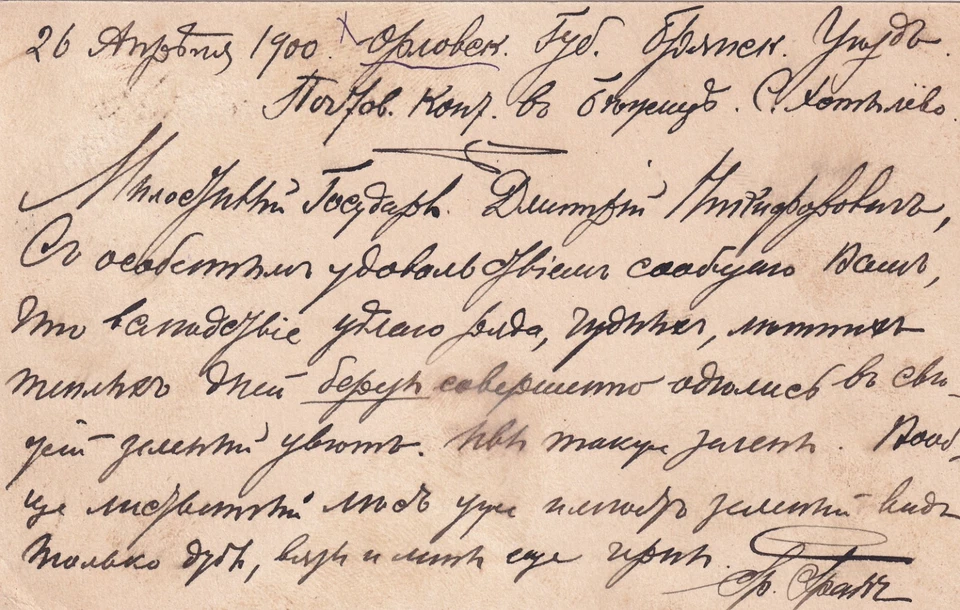 26 Апрѣля 1900. Орловск. Губ. Брянск. Уѣздъ.
Почтов. Конт. въ Бѣжицѣ. С. Хотылево.
Милостивый Государь Дмитрій Никифоровичъ,
Съ особеннымъ удовольствіемъ сообщаю Вамъ,
что вслѣдствіе цѣлаго ряда, чудныхъ, лѣтнихъ
теплыхъ дней березы совершенно одѣлись въ свѣ-
жій зеленый цвѣтъ. Ивы также зелены. Вооб-
ще лиственный лѣсъ уже имѣетъ зеленый видъ
только дубы, вязы и липы еще черны.
Ф.